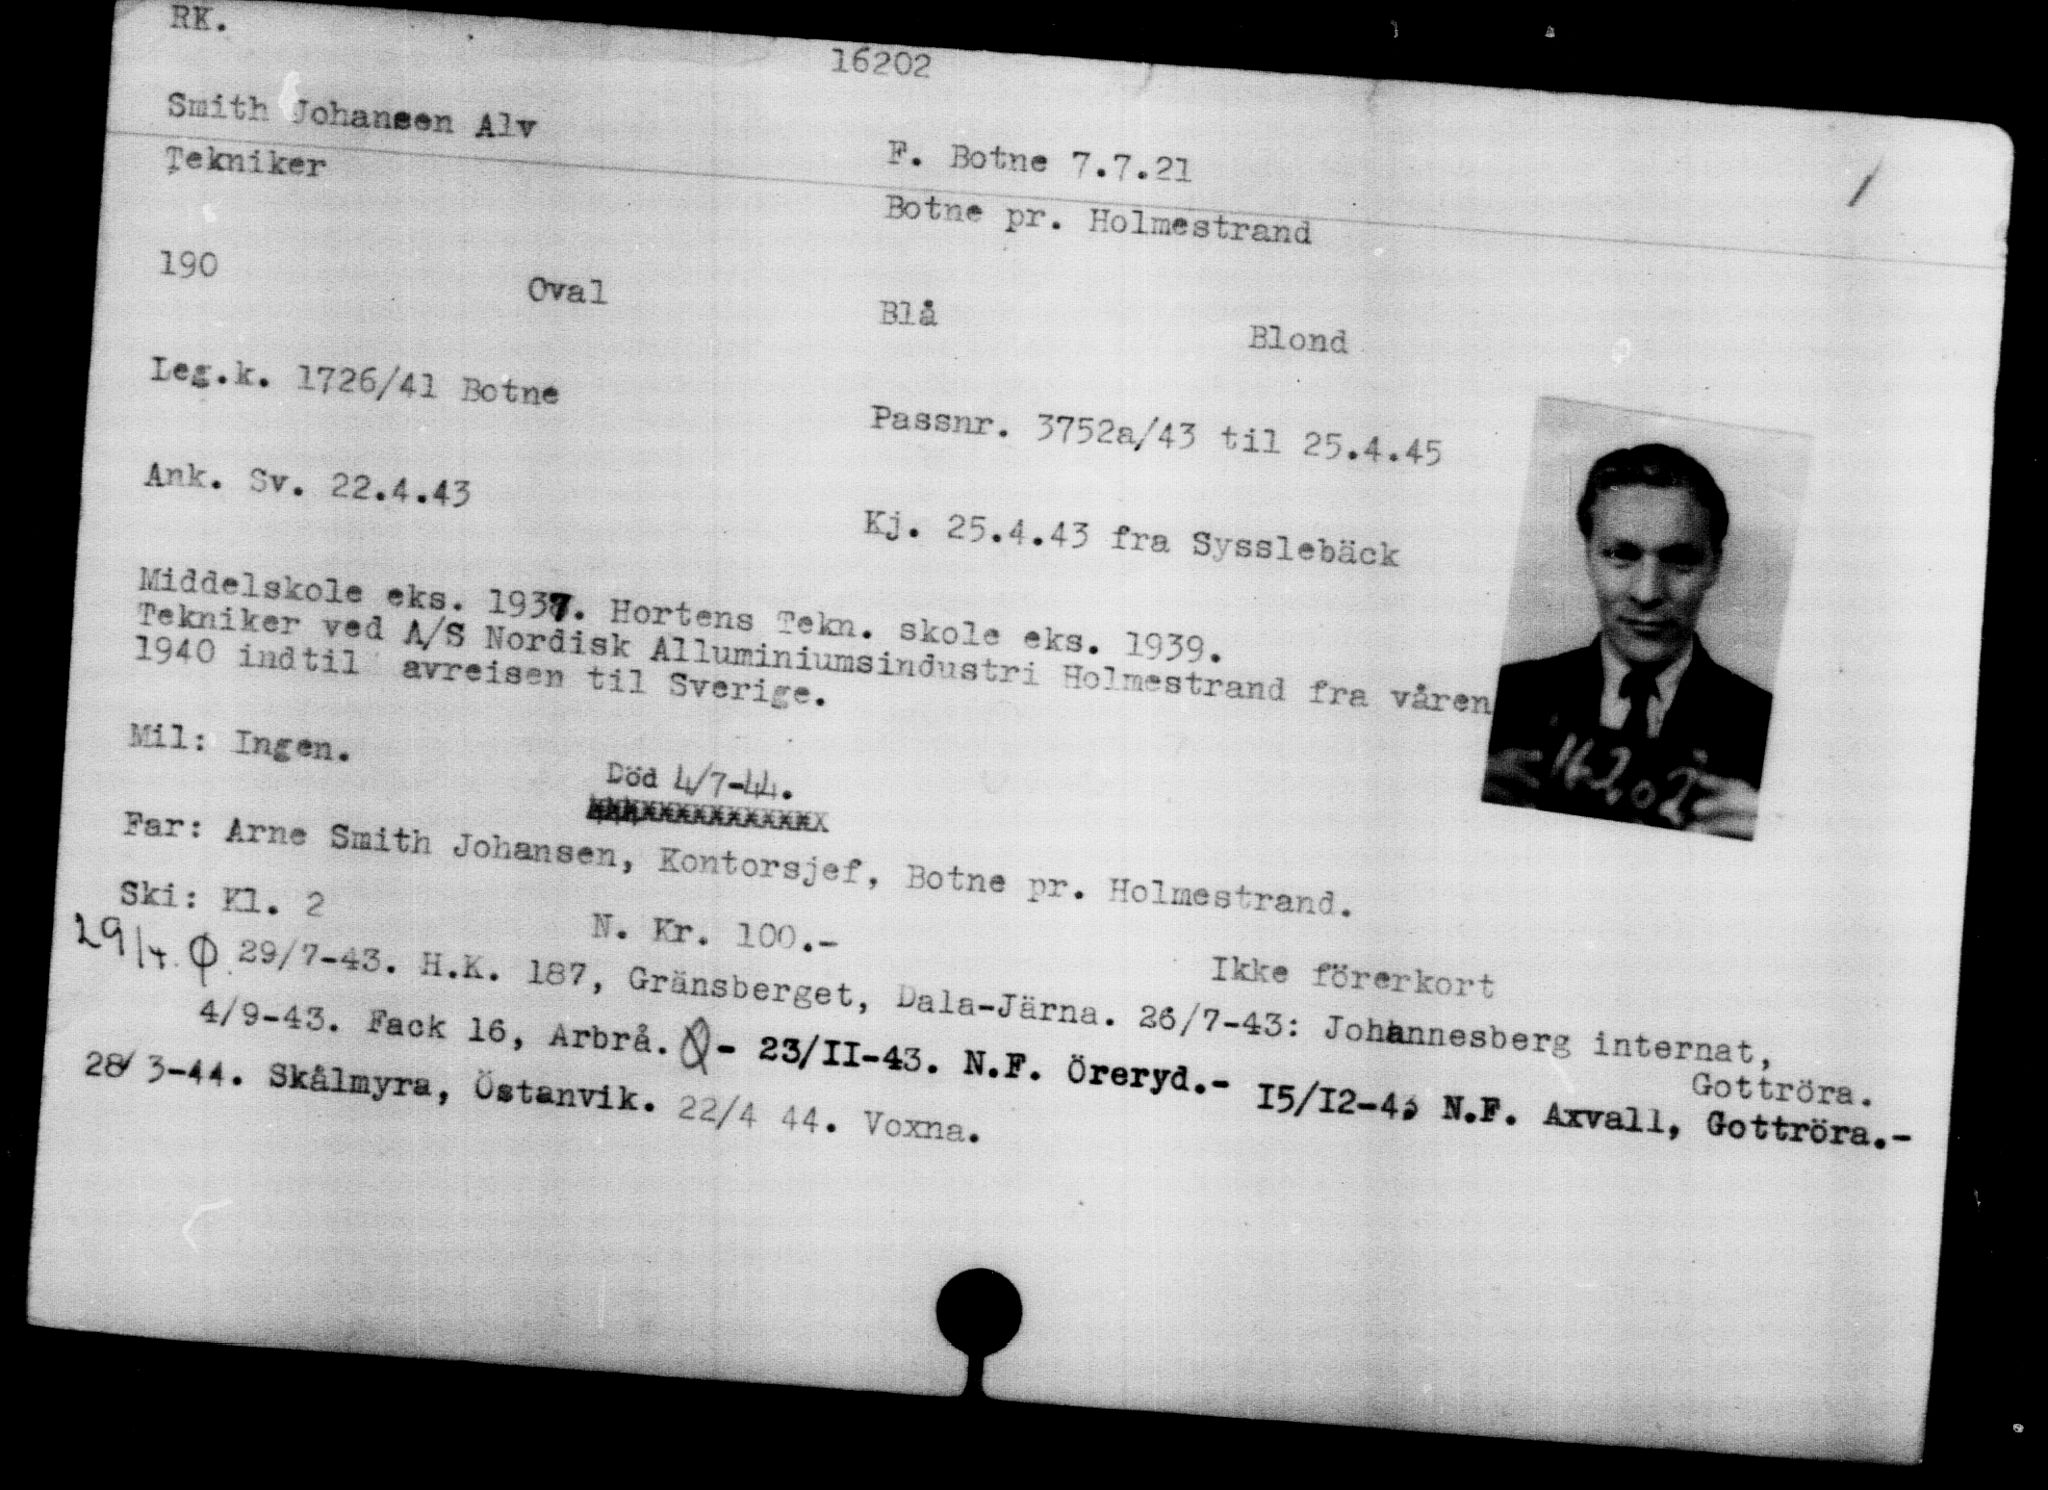 RK.
16202
Smith Johansen Alv
F. Botne 7.7.21
Tekniker
Botne pr. Holmestrand
190
Oval
Blå
Blond
Leg.k. 1726/41 Botne
Passnr. 3752a/43 til 25.4.45
Ank. Sv. 22.4.43
Kj. 25.4.43 fra Sysslebäck
Middelskole eks. 1937. Hortens Tekn. skole eks. 1939.
Tekniker ved A/S Nordisk Alluminiumsindustri Holmestrand fra våren
1940 indtil avreisen til Sverige.
16202
Mil: Ingen.
Död 4/7-44.
Far: Arne Smith Johansen, Kontorsjef, Botne pr. Holmestrand.
Ski: Kl. 2
N. Kr. 100.-
Ikke förerkort
29/4. 29/7-43. H.K. 187, Gränsberget, Dala-Järna. 26/7-43: Johannesberg internat,
Gottröra.
4/9-43. Fack 16, Arbrå. - 23/II-43. N.F. Öreryd.- I5/I2-43 N.F. Axvall, Gottröra.-
28/3-44. Skålmyra, Östanvik. 22/4 44. Voxna.